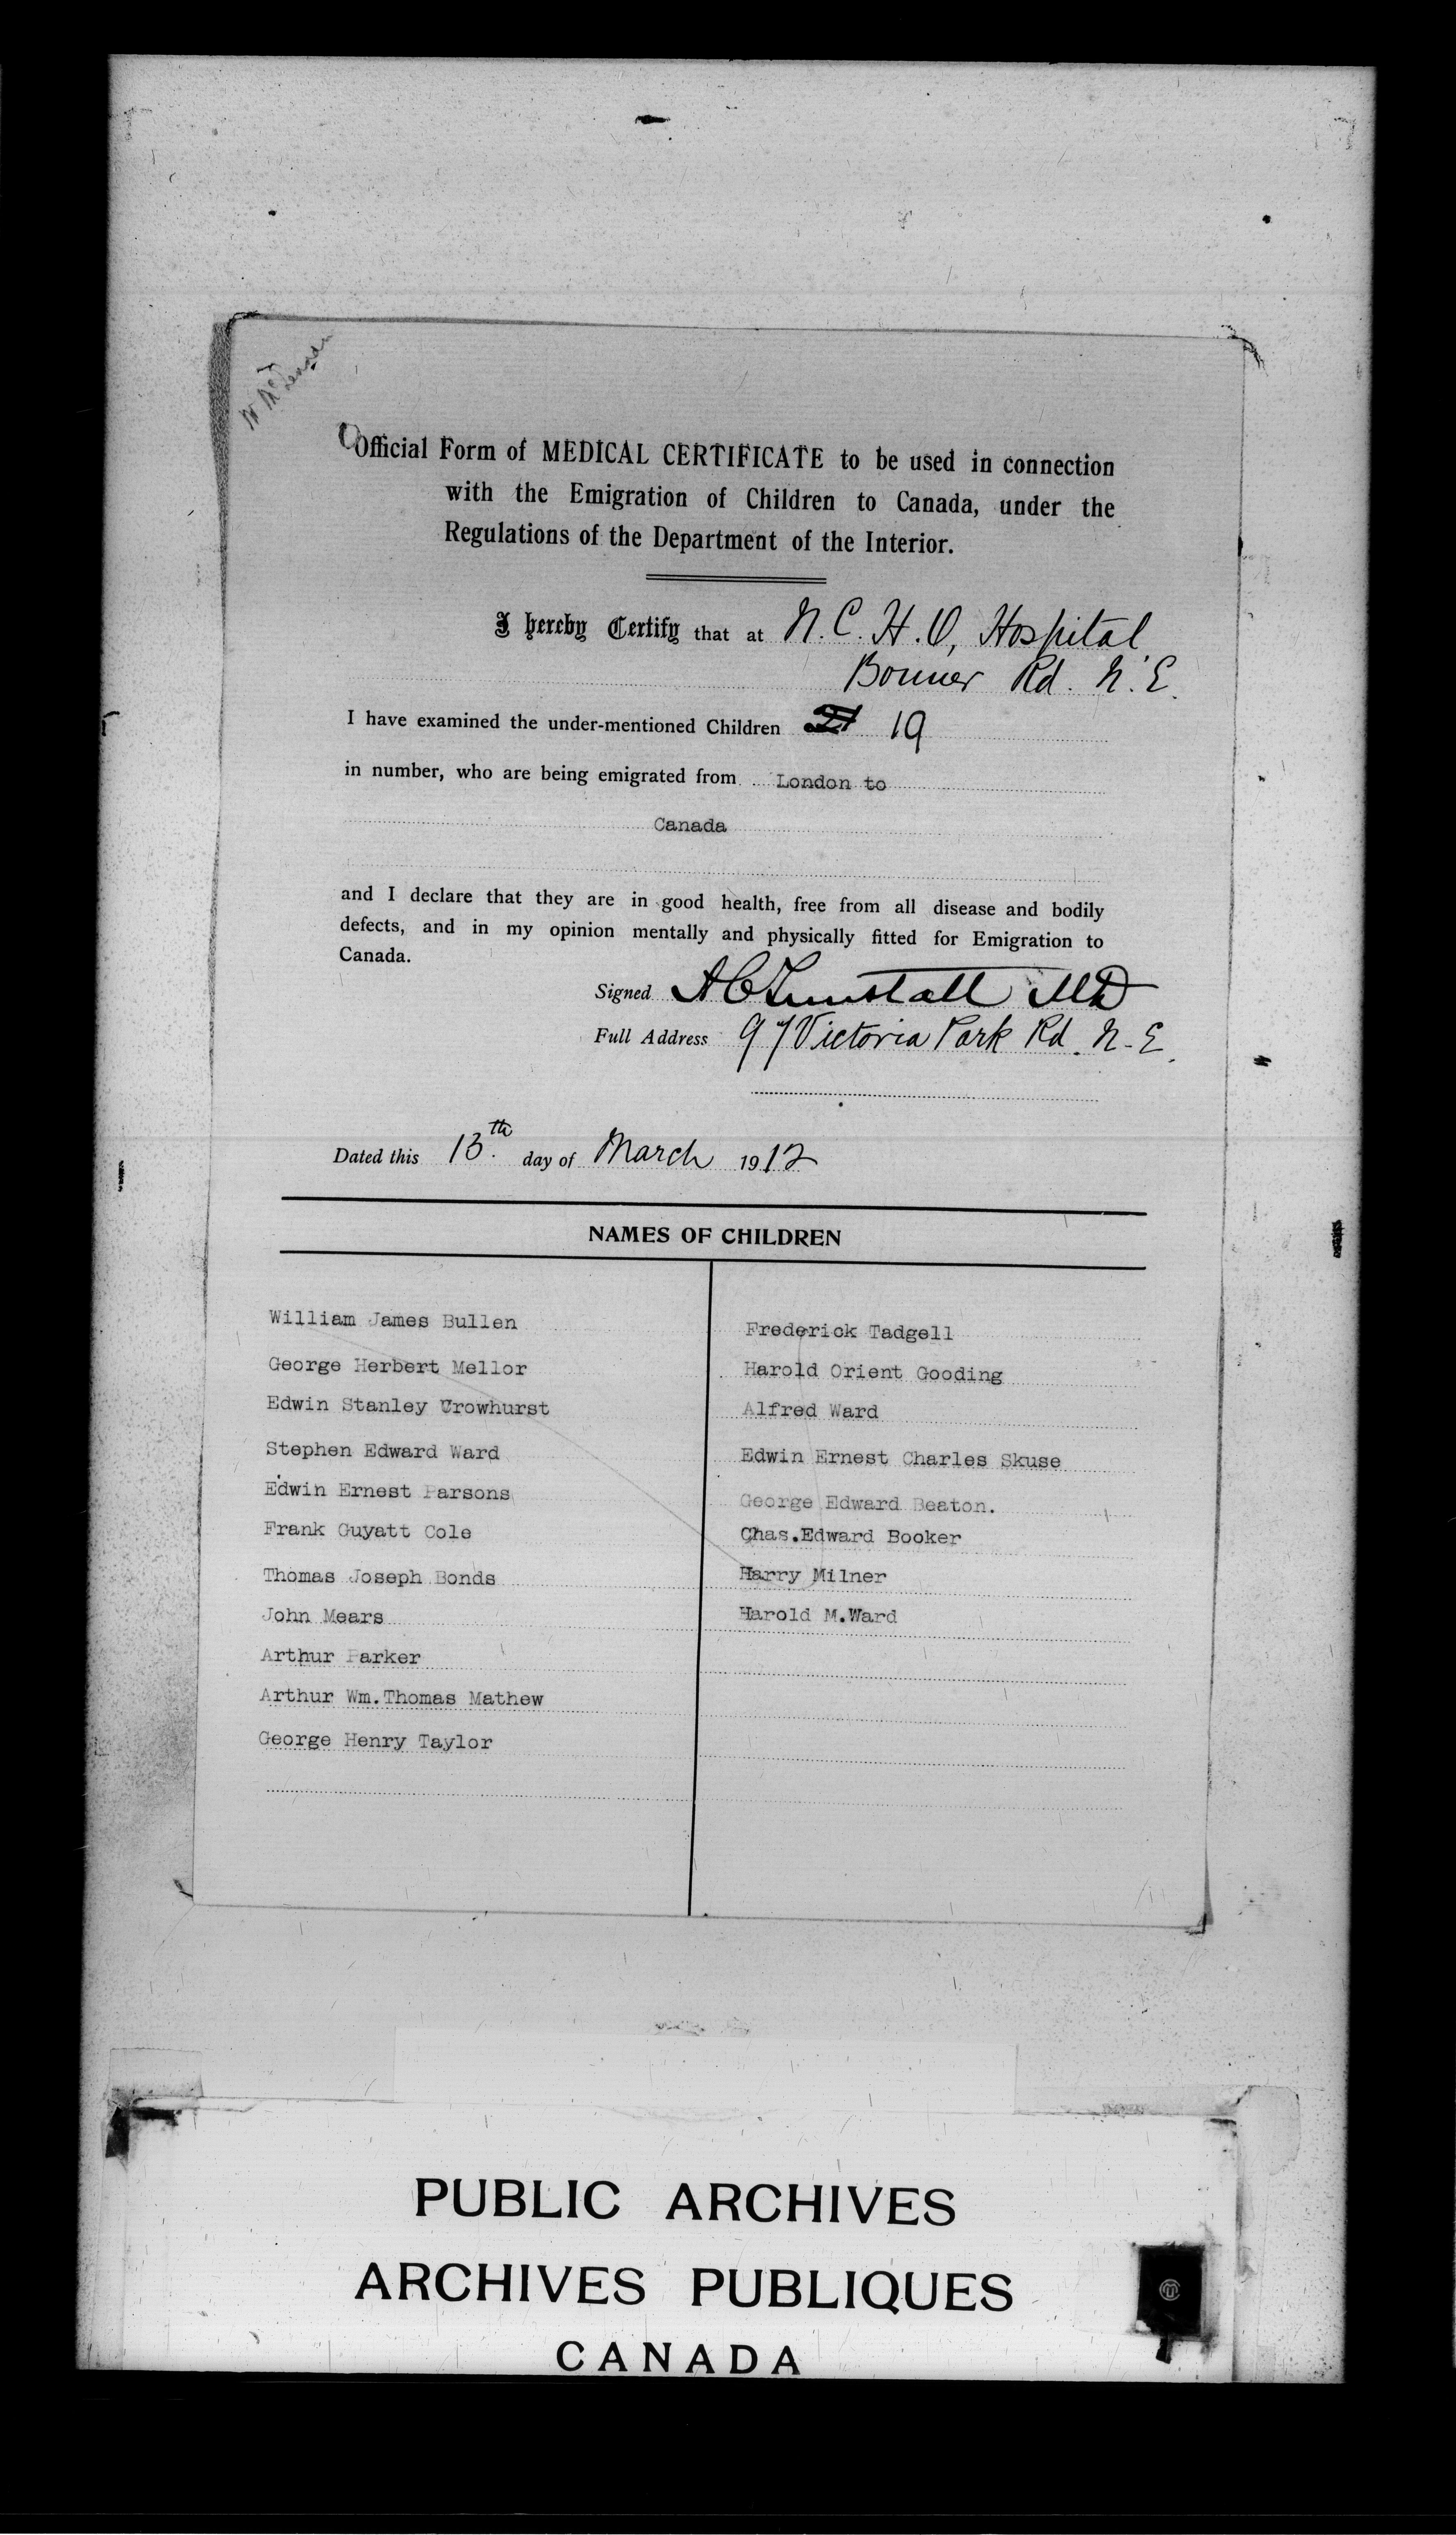 W McLennan
Official Form of MEDICAL CERTIFICATE to be used in connection
with the Emigration of Children to Canada, under the
Regulations of the Department of the Interior.
I hereby Certify that at N.C.H.O, Hospital
Bonner Rd. N.E.
I have examined the under-mentioned Children 19
in number, who are being emigrated from London to
Canada
and I declare that they are in good health, free from all disease and bodily
defects, and in my opinion mentally and physically fitted for Emigration to
Canada.
Signed A C Tunstall MD
Full Address 97 Victoria Park Rd. N-E.
Dated this 13th. day of March 1912
NAMES OF CHILDREN
William James Bullen
George Herbert Mellor
Edwin Stanley Crowhurst
Stephen Edward Ward
Edwin Ernest Parsons
Frank Guyatt Cole
Thomas Joseph Bonds
John Mears
Arthur Parker
Arthur Wm.Thomas Mathew
George Henry Taylor
Frederick Tadgell
Harold Orient Gooding
Alfred Ward
Edwin Ernest Charles Skuse
George Edward Beaton.
Chas.Edward Booker
Harry Milner
Harold M.Ward
PUBLIC ARCHIVES
ARCHIVES PUBLIQUES
CANADA